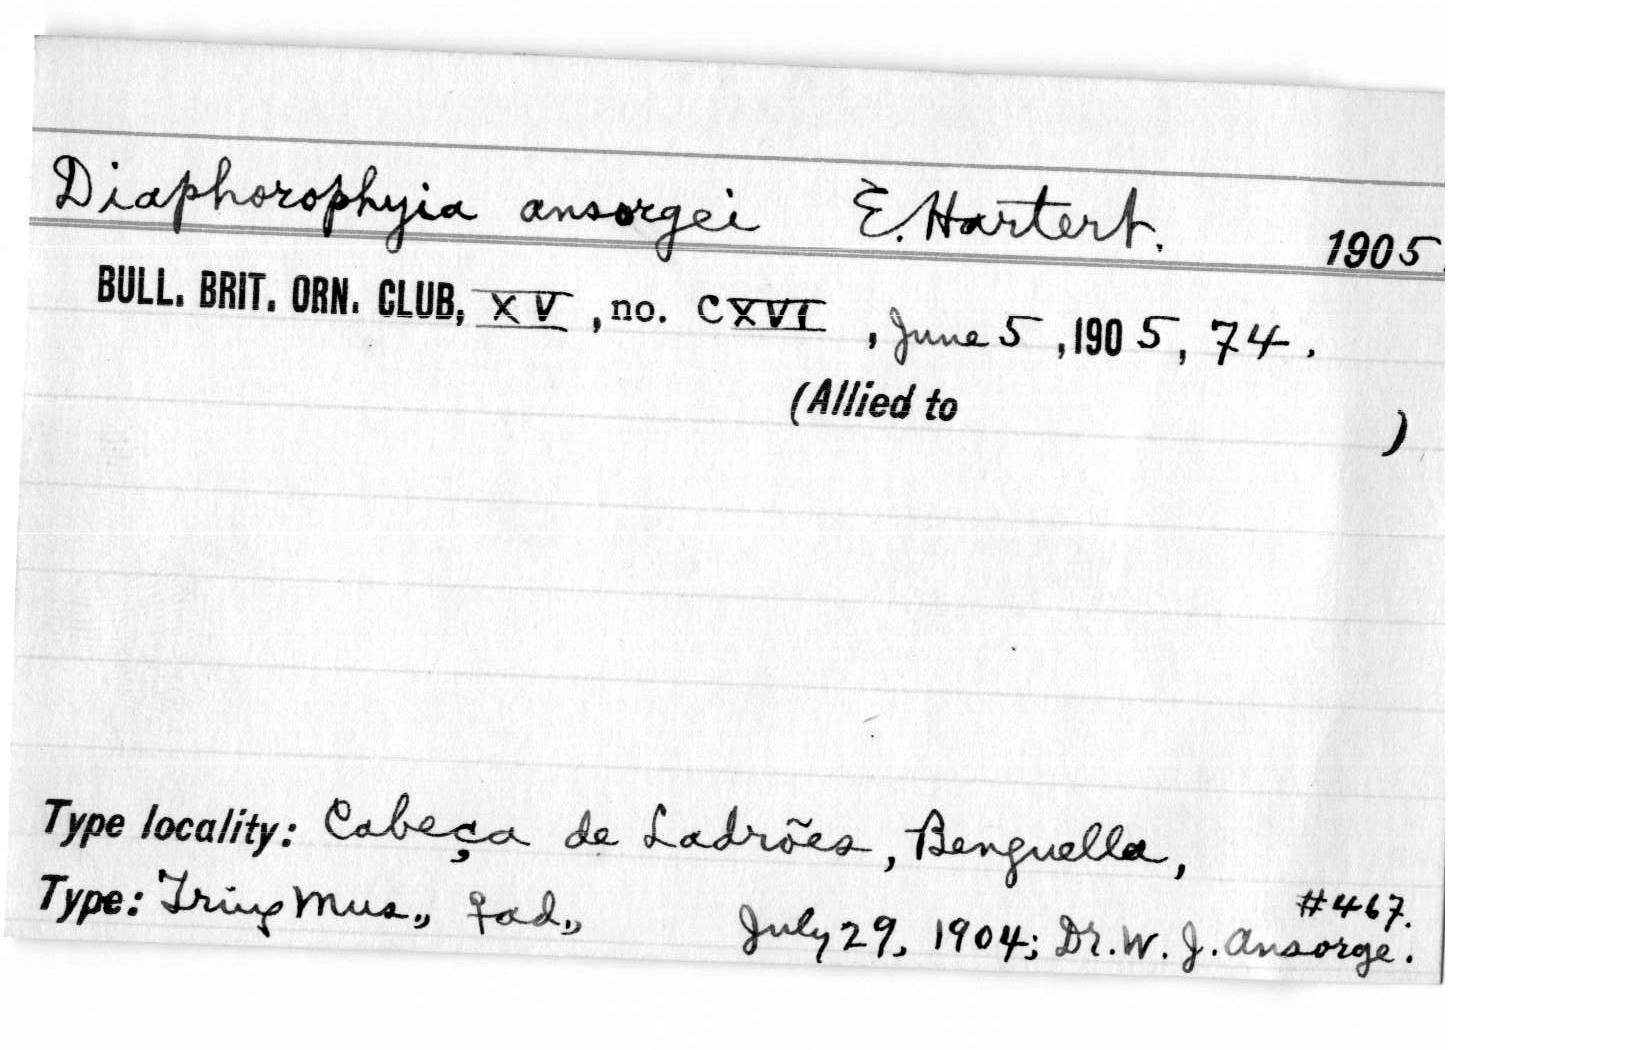 Diaphorophyia ansorgei E. Hartert. 1905.
BULL. BRIT. ORN. CLUB, XV, no. CXVI, June 5, 1905, 74.
(Allied to )
Type locality: Cabeça de Ladrões, Benguella,
Type: Tring Mus., ♀ ad., July 29, 1904; Dr. W. J. Ansorge. #467.